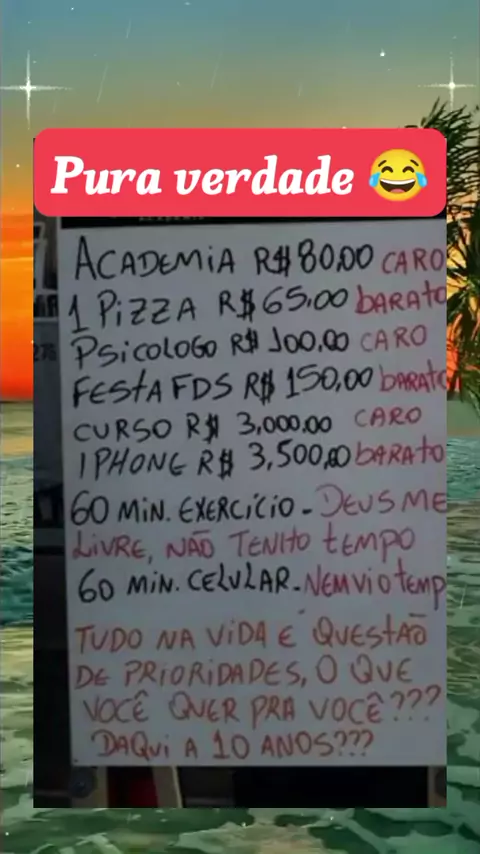 Pura verdade 😂
ACADEMIA R$80,00 CARO
1 PIZZA R$65,00 BARATO
PSICOLOGO R$100,00 CARO
FESTA FDS R$150,00 BARATO
CURSO R$ 3,000,00 CARO
IPHONE R$ 3,500,00 BARATO
60 MIN. EXERCÍCIO - DEUS ME
LIVRE, NÃO TENHO TEMPO
60 MIN. CELULAR - NEM VI O TEMP
TUDO NA VIDA E QUESTÃO
DE PRIORIDADES, O QUE
VOCÊ QUER PRA VOCÊ???
DAQUI A 10 ANOS???